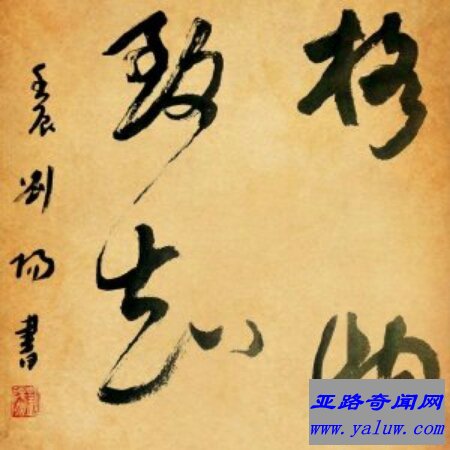 格物
致知
壬辰 刘阳书
亚路奇闻网
www.yaluw.com